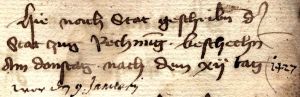 Hie noch Stat geschribn d
Stat zug Rechnung beschechn
Am donstag nach dem xij tag 1427
wor den 9 Januarij